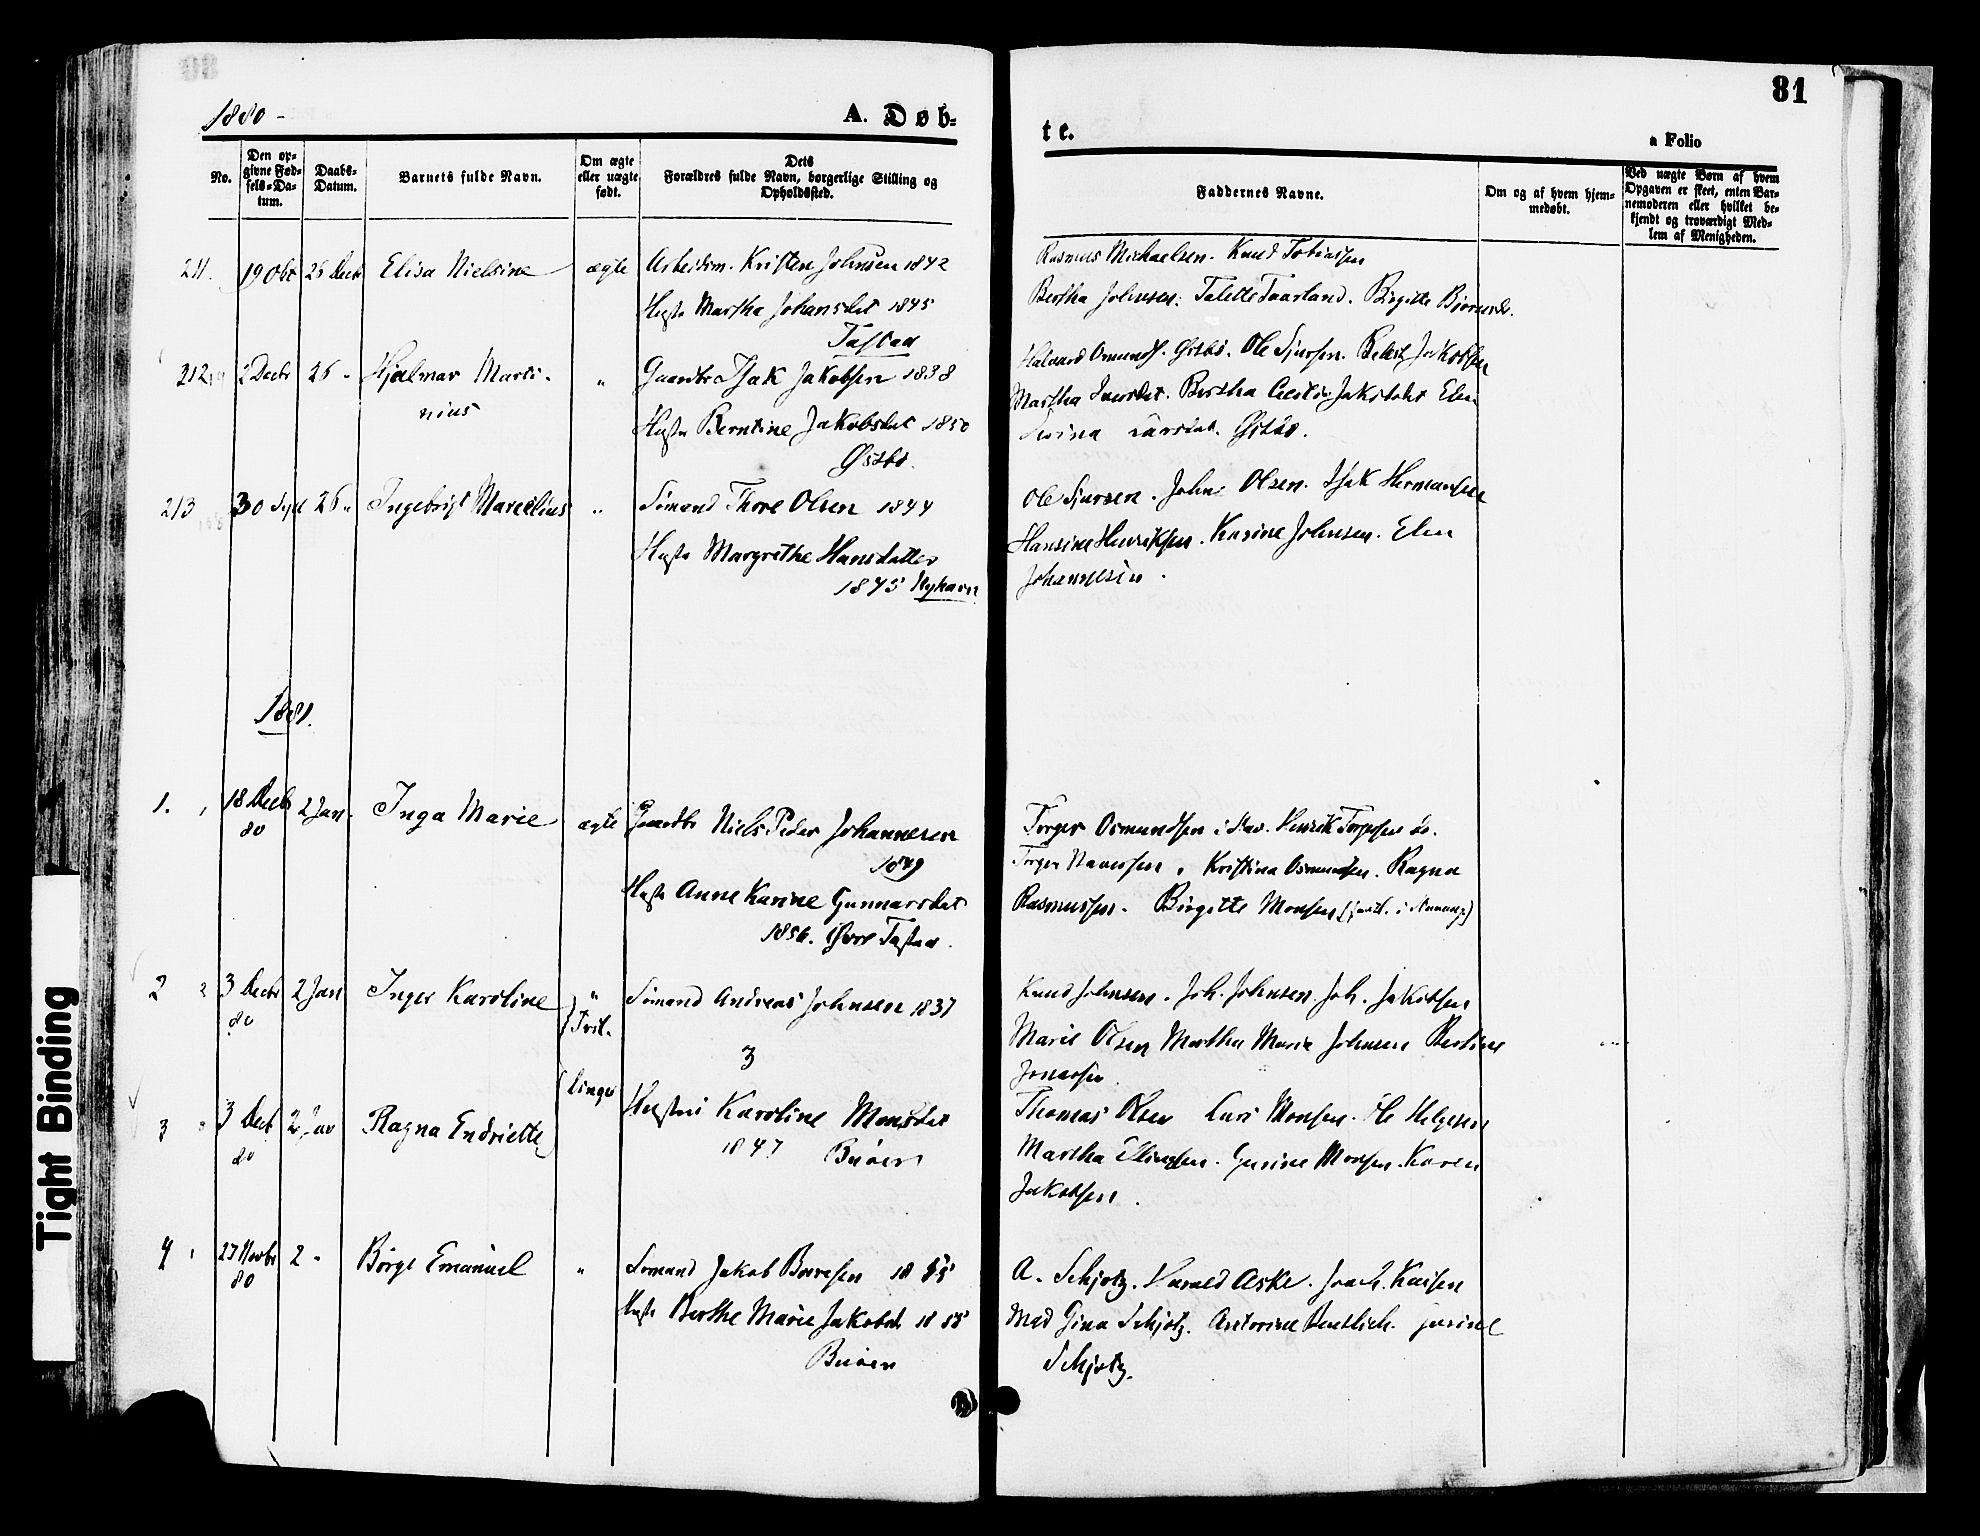 81
1880 -
A. Døb-
te.
a Folio
No.
Den op-
givne Fød-
sels-Da-
tum.
Daabs-
Datum.
Barnets fulde Navn.
Om ægte
eller uægte
født.
Dets
Forældres fulde Navn, borgerlige Stilling og
Opholdssted.
Faddernes Navne.
Om og af hvem hjem-
medøbt.
Ved uægte Børn af hvem
Opgaven er skeet, enten Bar-
nemoderen eller hvilket be-
kjendt og troværdigt Med-
lem af Menigheden.
211. 19 Obr 26 Decb Elisa Nielsine ægte Arbeidsm. Kristen Johnsen 1842
Hust. Martha Johansdat 1845
Tastad
Rasmus Michaelsen. Knud Tobiassen
Bertha Johnsen. Talette Taarland. Birgitte
212 2 Decbr 26 - Hjalmar Marti-
nius
" Gaardbr Isak Jakobsen 1838
Hustr Berntine Jakobsdat 1850
Østbø.
Halvard Osmunds. Østbø. Ole Sjursen. Jakobsen
Martha Bertha Jakobsdt Elen
Larsdat. Østbø.
213 30 Sept 26 " Ingebrigt Marcelius " Sømand Thore Olsen 1844
Hustr Margrethe Hansdatter
1845 Nyhavn
Ole Sjursen. John Olsen. Isak Hermansen
Hansine Henriksen. Karine Johnsen. Elen
Johannesen.
1881.
1. 18 Decb
80
2 Jan. Inga Marie ægte Gaardbr Niels Peder Johannesen
1849
Hustr Anne Karine Gunnarsdat
1856. Øvre Tastad.
Torger Osmundsen i Stav. Henrik Torgersen
Torger Kristina Osmundsen. Ragna
Rasmussen. Birgitte Monsen
2 3 Decbr
80
2 Jan Inger Karoline "
Tvil-
Sømand Andreas Johnsen 1837
3
Knud Johnsen. Joh. Johnsen. Joh. Jakobsen
Marie Olsen Martha Marie Johnsen
Jonassen
3 3 Decb
80
2 Jan Ragna Endriette
linger
Hustru Karoline Monsdat
1847 Buøen
Thomas Olsen Lars Monsen. Ole Helgesen
Martha Ellingsen. Gurine Monsen. Karen
Jakobsen.
4 27 Novbr
80
2 - Børge Emanuel " Sømand Jakob Børresen
Hustr Berthe Marie Jakobd. 1855
Buøen
A. Schjøtz. Harald Aske. Kaisen
Mad Gina Schjøtz. Antonine
Schjøtz.
Tight Binding